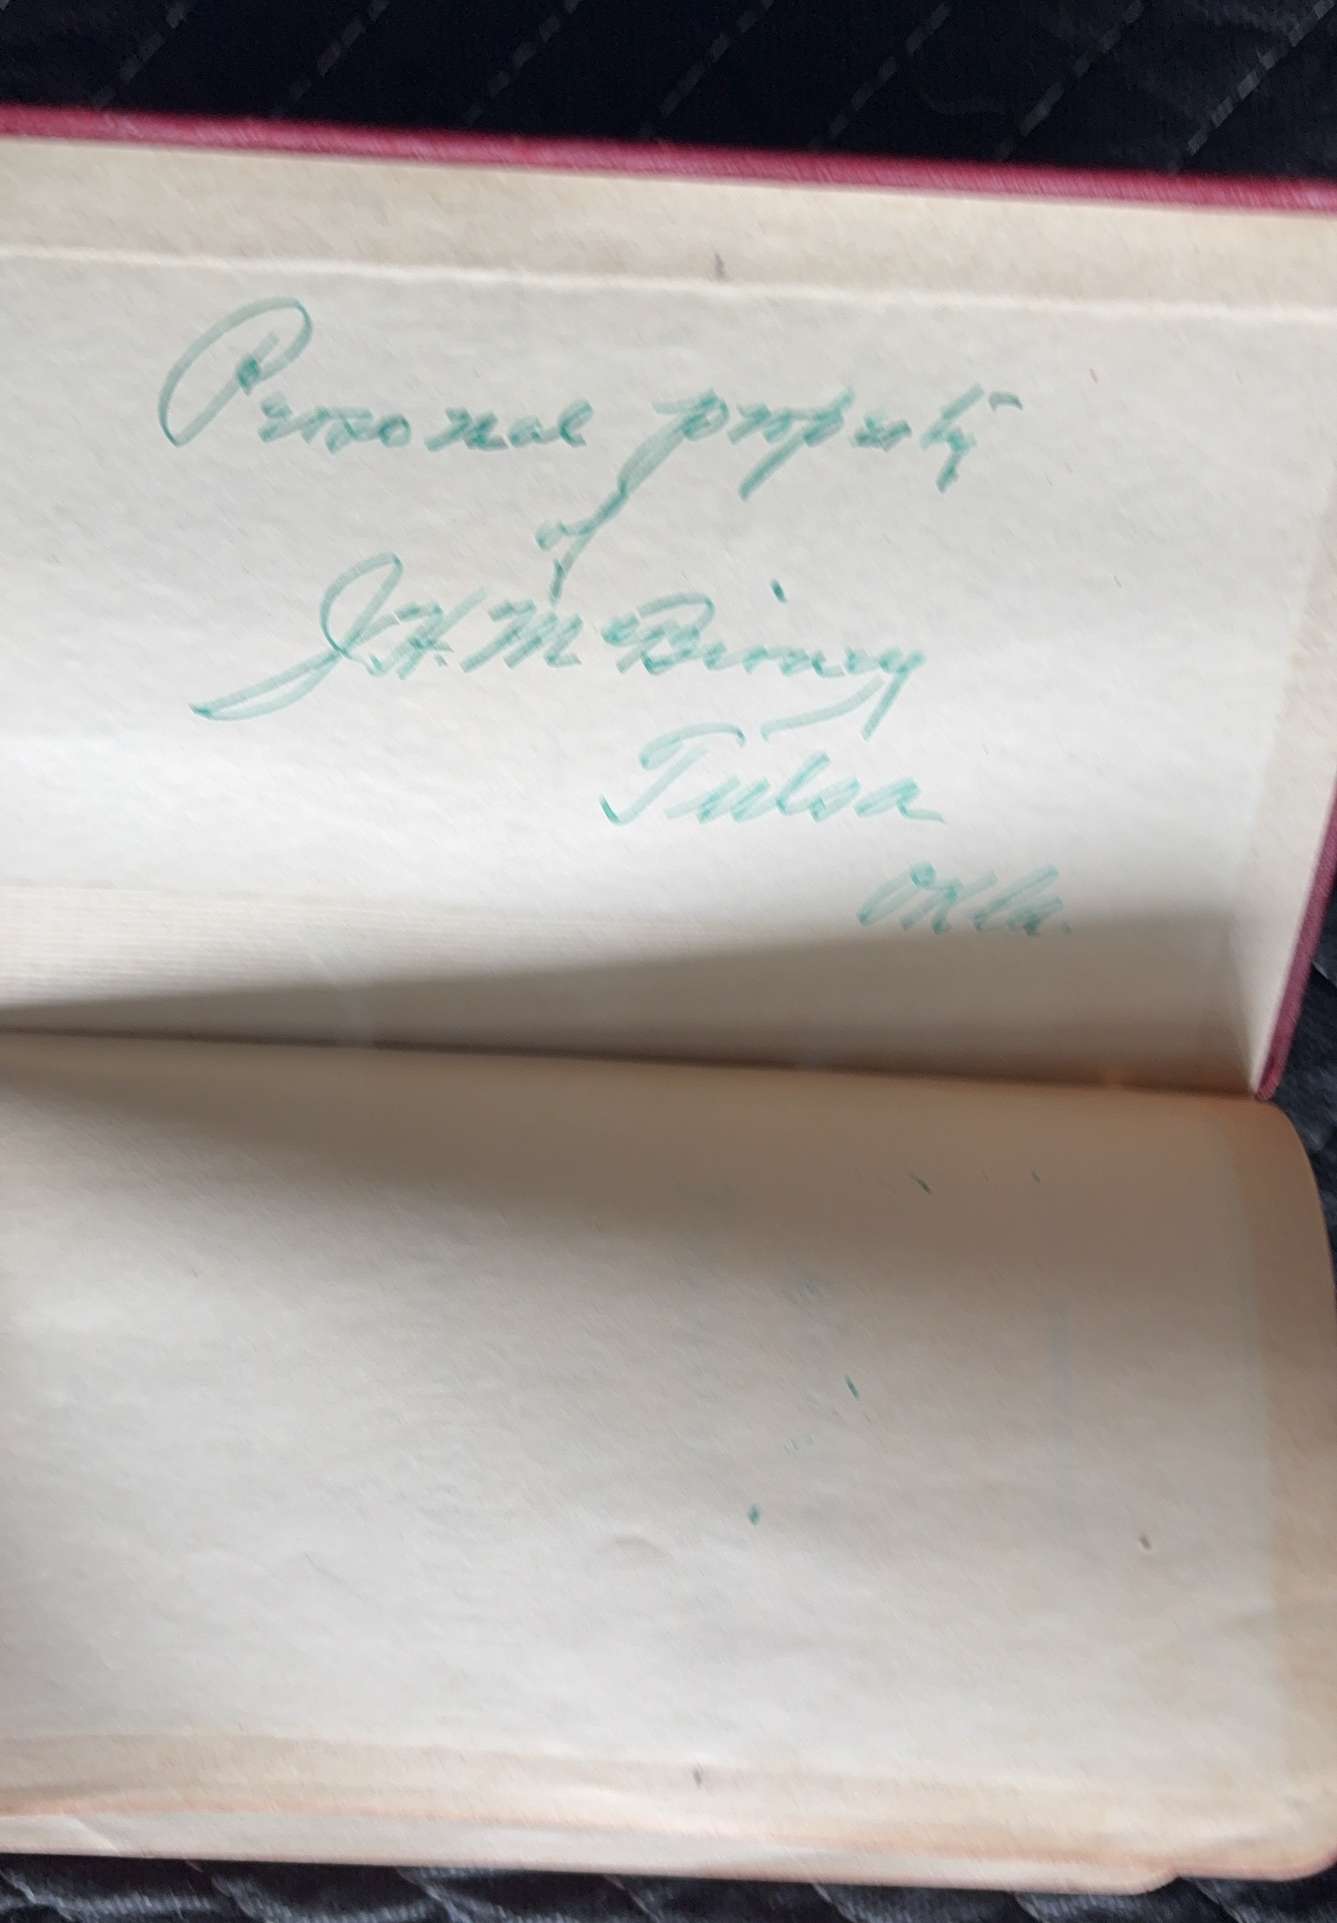 Personal property
of
J. H. McBirney
Tulsa
Okla.